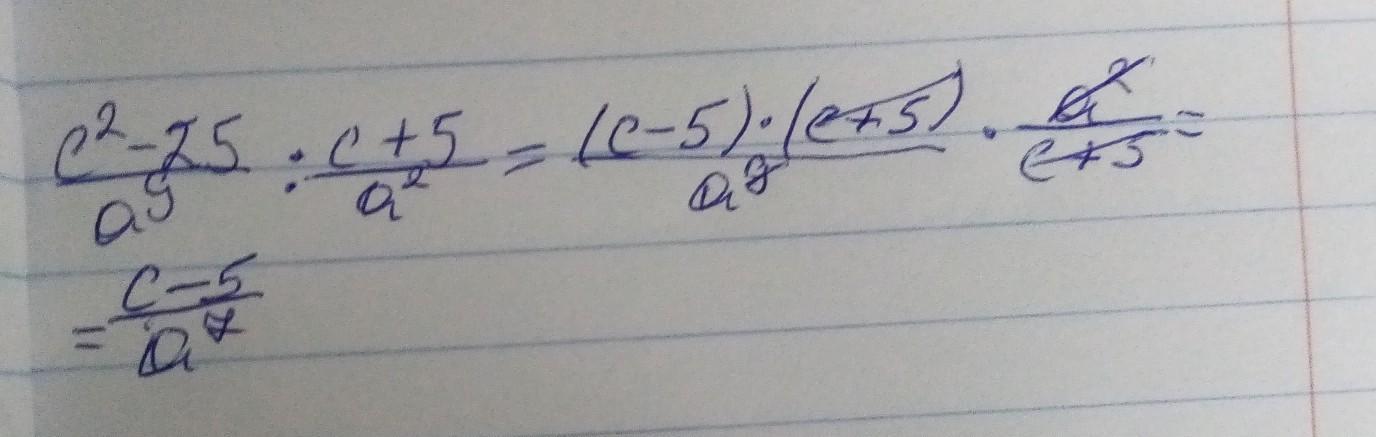 (c²-25)/a⁹ : (c+5)/a² = ((c-5)·(c+5))/a⁷ · a²/(c+5) =
= (c-5)/a⁷